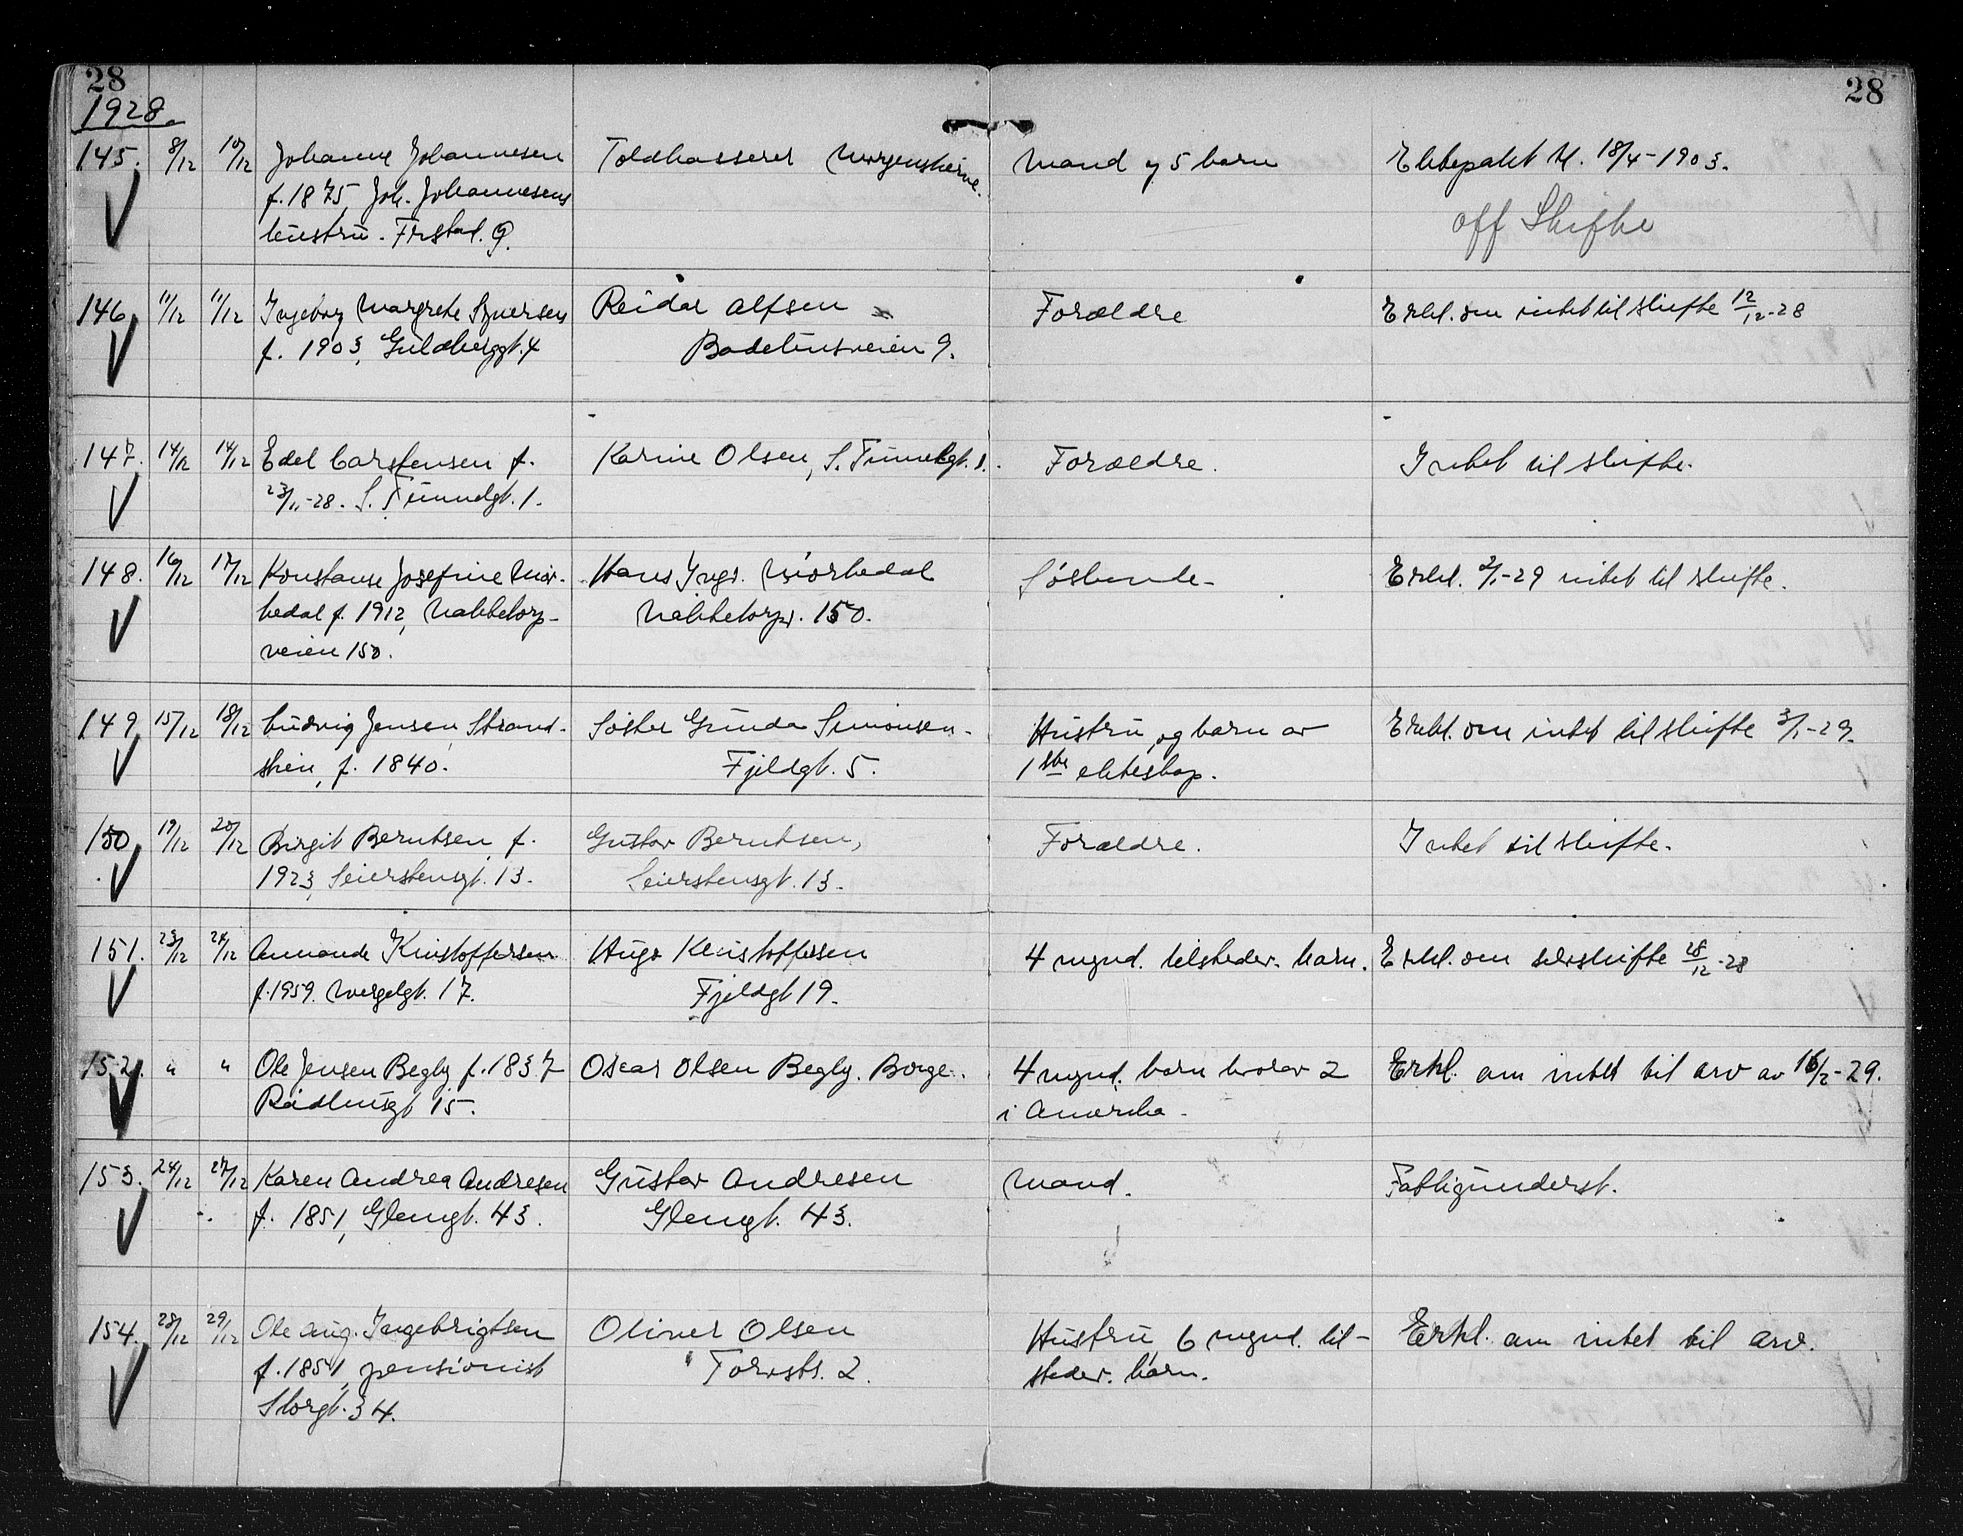 28 28
1928.
145. 8/12 10/12 Johanne Johannesen Toldkasserer Morgenstierne. Mand og 5 barn Ektepakt tl. 18/4-1903.
f. 1875, Joh. Johannesens off Skifte
hustru. Frstad. 9.
146. 11/12 11/12 Ingeborg Margrete Syversen Reidar Alfsen Forældre Erkl. om intet til skifte 12/12-28
f. 1903, Guldbergsgt. 4 Badehusveien 9.
147. 14/12 14/12 Edel Carstensen f. Karine Olsen, S. Tunnelgt. 1. Forældre. Intet til skifte.
23/11-28. S. Tunnelgt. 1.
148. 16/12 17/12 Konstanse Josefine Mør- Hans Ingv. Mørkedal Søskende- Erkl. 2/1-29 intet til skifte.
kedal f. 1912, Nabbetorp- Nabbetorpv. 150.
veien 150.
149. 15/12 18/12 Ludvig Jensen, Strand- Søster Gunda Simonsen- Hustru, og barn av Erkl. om intet til skifte 3/1-29.
skien, f. 1840. Fjeldgt. 5. 1ste ekteskap.
150. 19/12 20/12 Birgit Berntsen, f. Gustav Berntsen, Forældre. Intet til skifte.
1923, Seierstensgt. 13. Seierstensgt. 13.
151. 23/12 24/12 Amanda Kristoffersen Hugo Kristoffersen 4 mynd. tilsteder. barn. Erkl. om selvskifte 28/12-28
f. 1959. Wergelgt. 17. Fjeldgt 19.
152. " " Ole Jensen Begby f. 1837 Oscar Olsen Begby. Borge. 4 mynd. barn hvorav 2 Erkl. om intet til arv av 16/2-29.
Rådhusgt 15. i Amerika-
153. 24/12 27/12 Karen Andrea Andresen Gustav Andresen Mand. Fattigunderst.
f. 1851, Glengt. 43. Glengt. 43.
154. 28/12 29/12 Ole Aug. Ingebrigtsen Oliver Olsen Hustru, 6 mynd. til- Erkl. om intet til arv.
f. 1851, pensionist Torvstr. 2. steder. barn.
Storgt. 34.